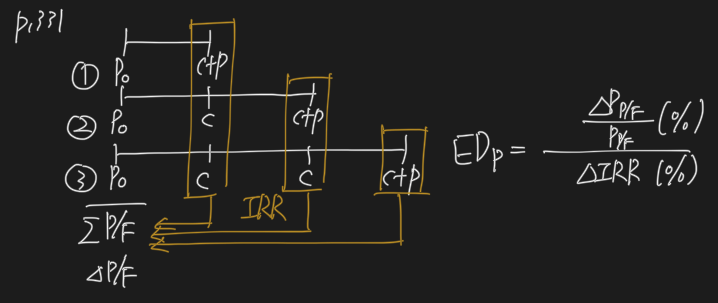 p.331
① P₀ C+P
② P₀ C C+P
③ P₀ C C C+P
IRR
ΣP/F
ΔP/F
EDp = (ΔP_P/F / P_P/F (%)) / (ΔIRR (%))